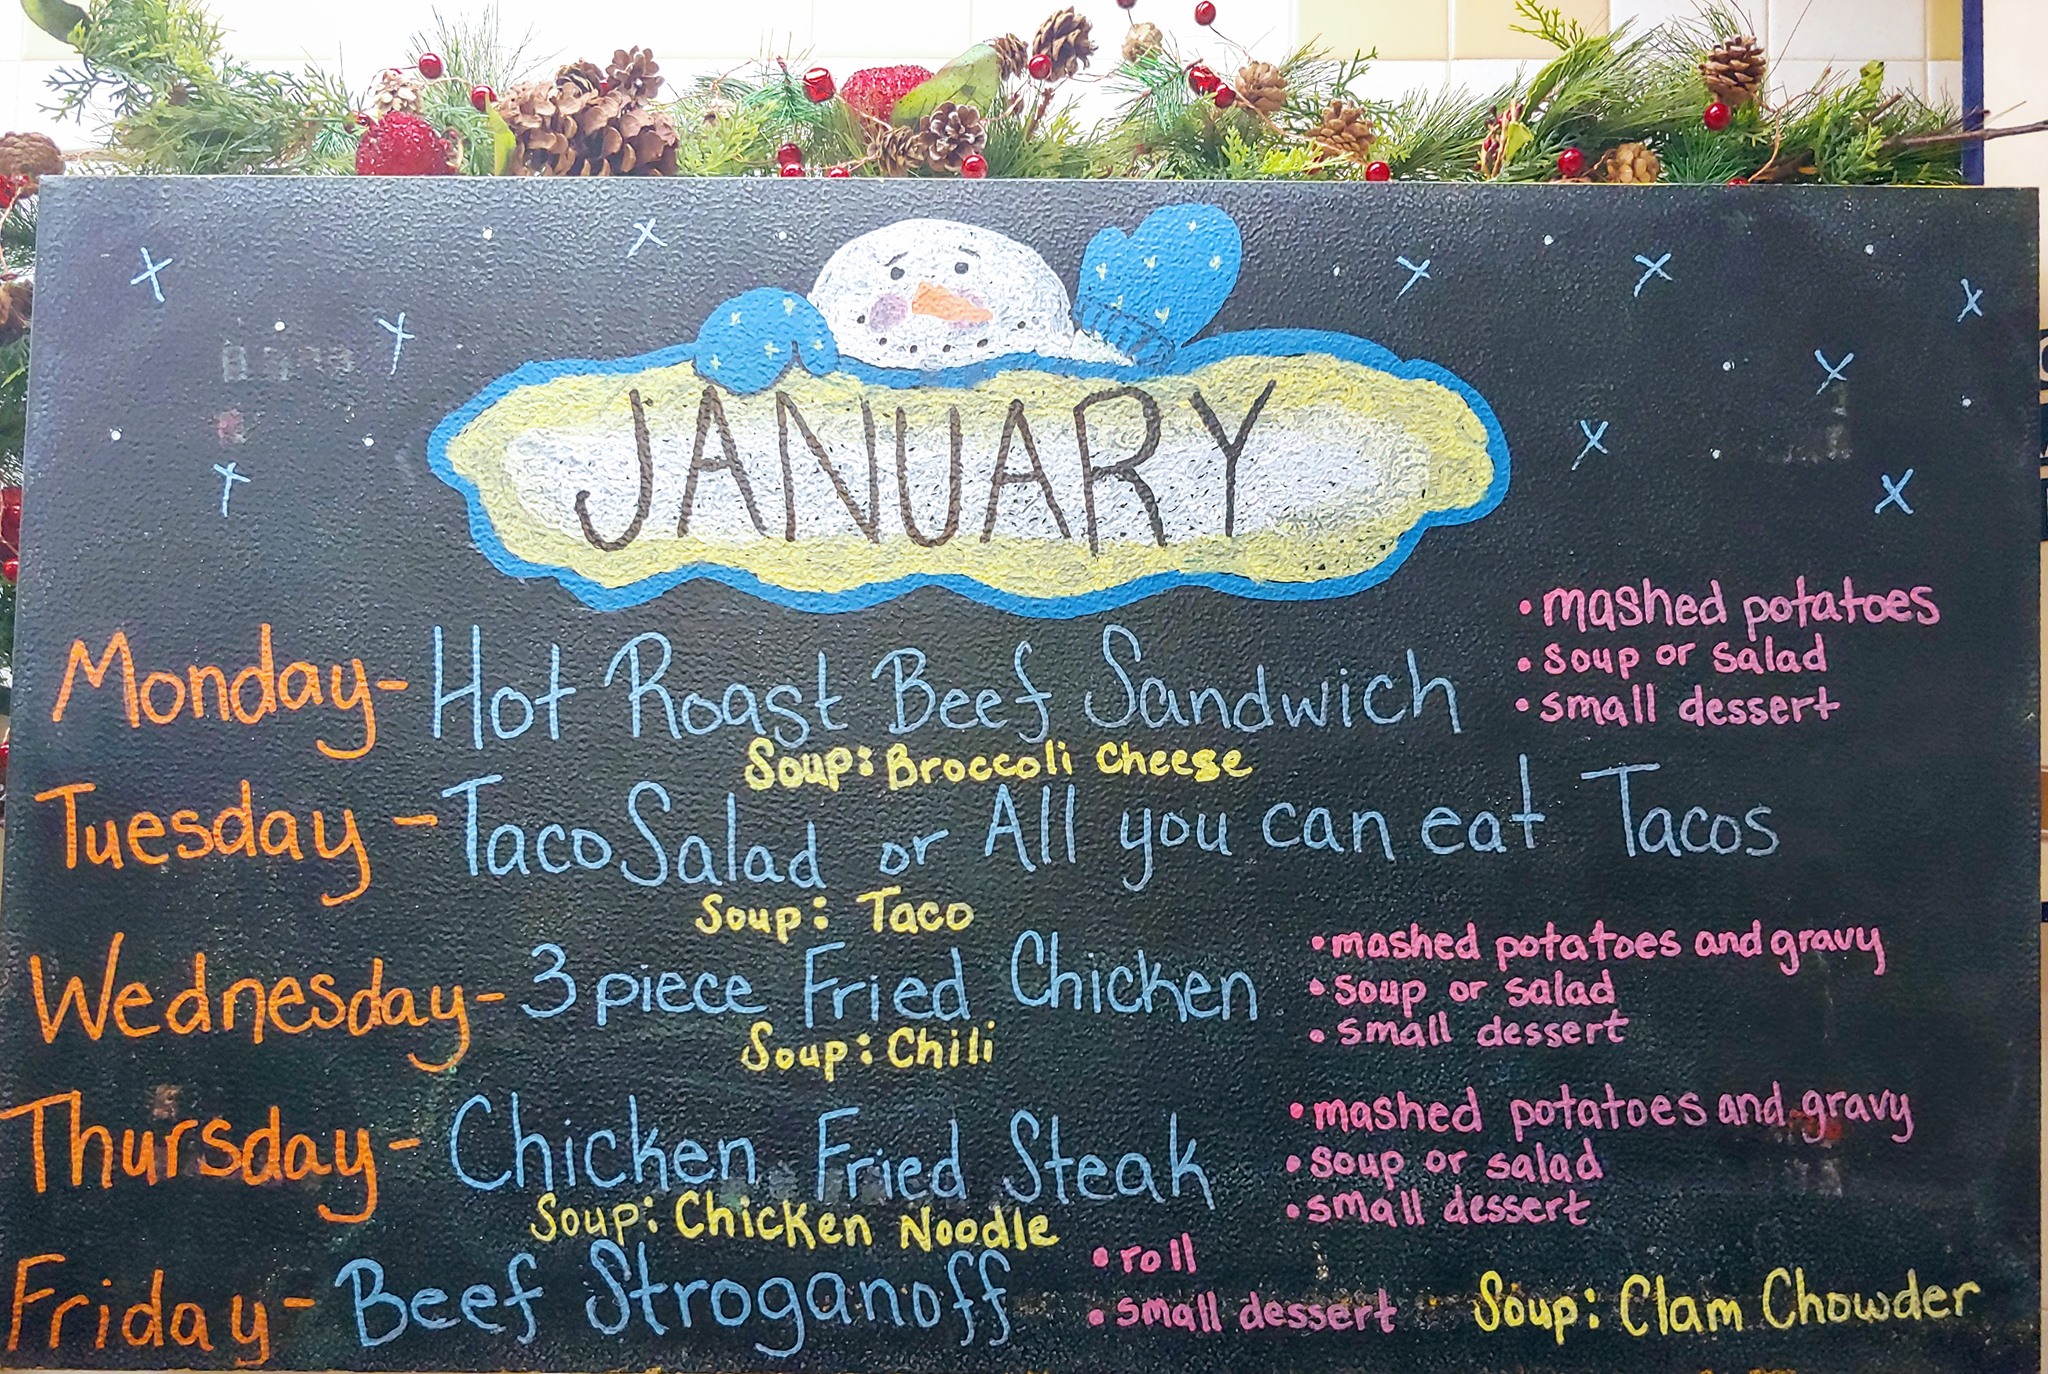 JANUARY
Monday- Hot Roast Beef Sandwich
• mashed potatoes
• soup or salad
• small dessert
Soup: Broccoli Cheese
Tuesday - Taco Salad or All you can eat Tacos
Soup: Taco
Wednesday- 3 piece Fried Chicken
• mashed potatoes and gravy
• soup or salad
• small dessert
Soup: Chili
Thursday- Chicken Fried Steak
• mashed potatoes and gravy
• soup or salad
• small dessert
Soup: Chicken Noodle
Friday- Beef Stroganoff
• roll
• small dessert
Soup: Clam Chowder